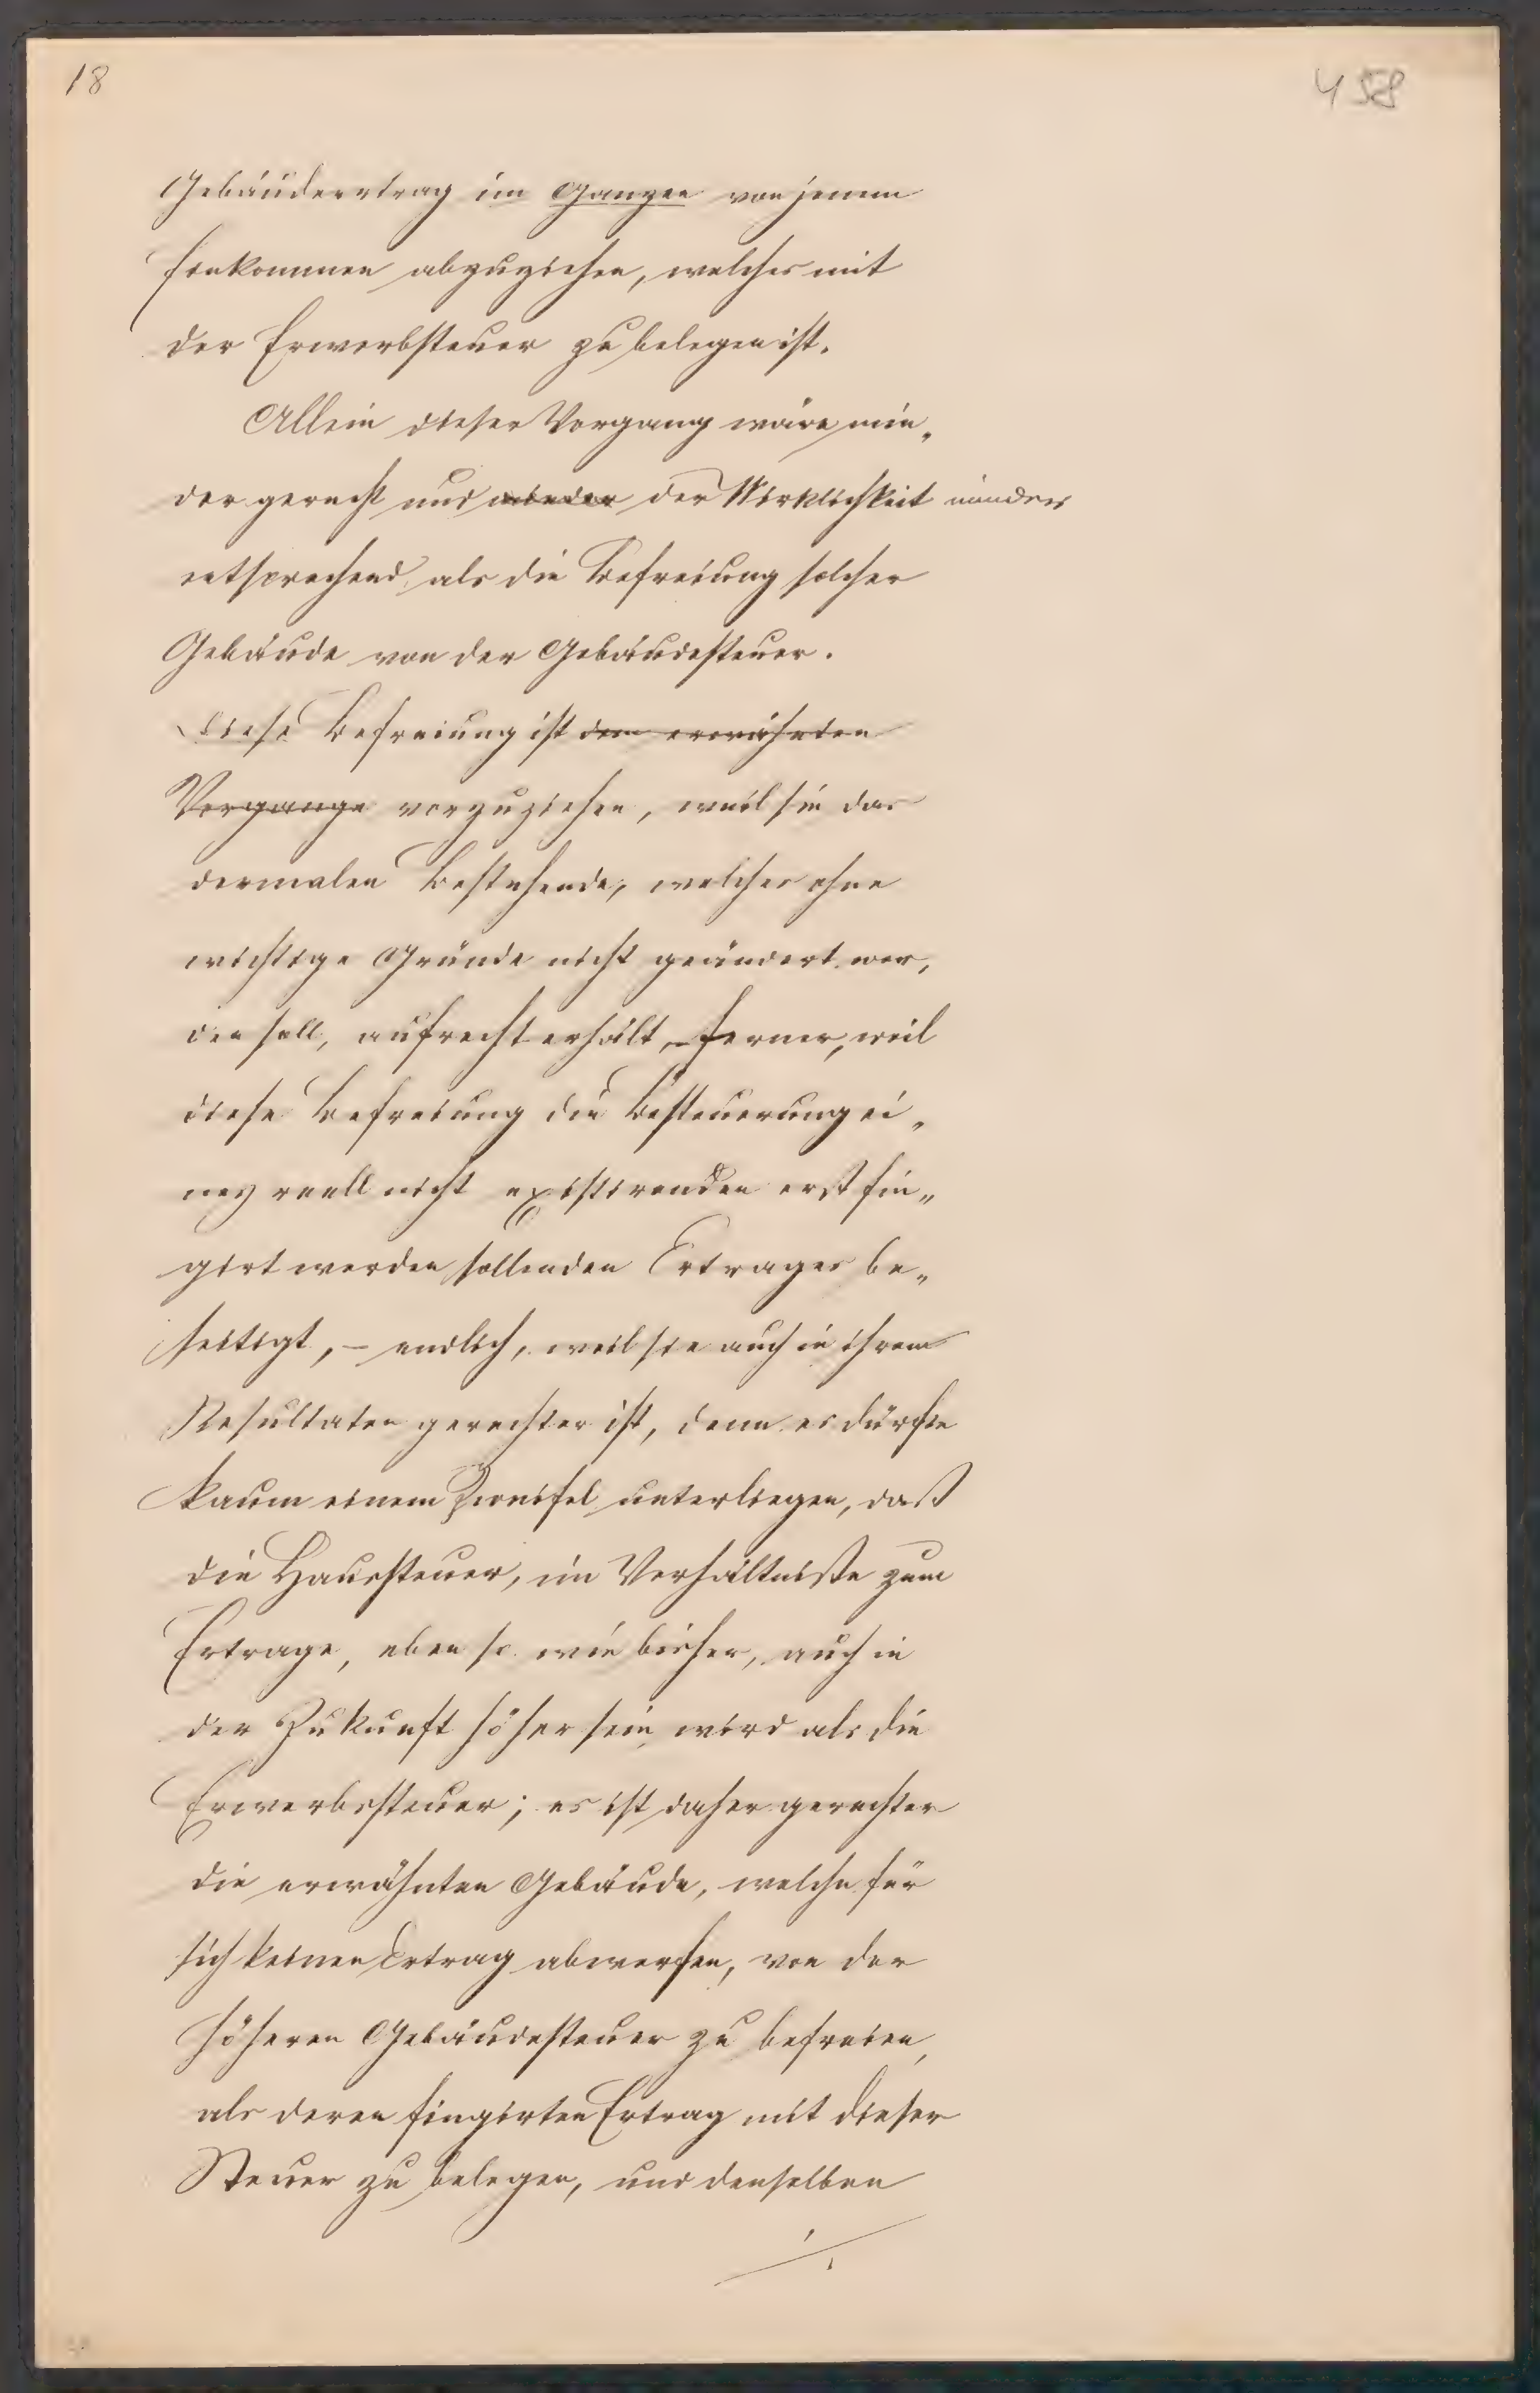 18
458
Gebäudeertrag im Ganzen von jenem
Einkommen abzuziehen, welches mit
der Erwerbsteuer zu belegen ist.
Allein dieser Vorgang wäre min„
der gerecht und minder der Wirklichkeit minder
entsprechend, als die Befreiung solcher
Gebäude von der Gebäudesteuer.
Diese Befreiung ist dem erwähnten
Vorgange vorzuziehen, weil sie das
dermalen Bestehende, welches ohne
wichtige Gründe nicht geändert wer„
den soll, aufrecht erhält, – ferner, weil
diese Befreiung die Besteuerung ei„
nes reell nicht existirenden erst fin„
girt werden sollenden Ertrages be„
seitigt, – endlich, weil sie auch in ihrem
Resultaten gerechter ist, denn es dürfte
kaum einem Zweifel unterliegen, daß
die Haussteuer, im Verhältniße zum
Ertrage, eben so wie bisher, auch in
der Zukunft höher sein wird als die
Erwerbssteuer; es ist daher gerechter
die erwähnten Gebäude, welche für
sich keinen Ertrag abwerfen, von der
höheren Gebäudesteuer zu befreien,
als deren fingirten Ertrag mit dieser
Steuer zu belegen, und denselben
./.